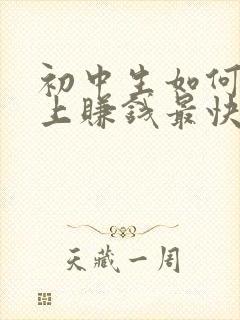 初中生如何
上赚钱最快
天藏一周